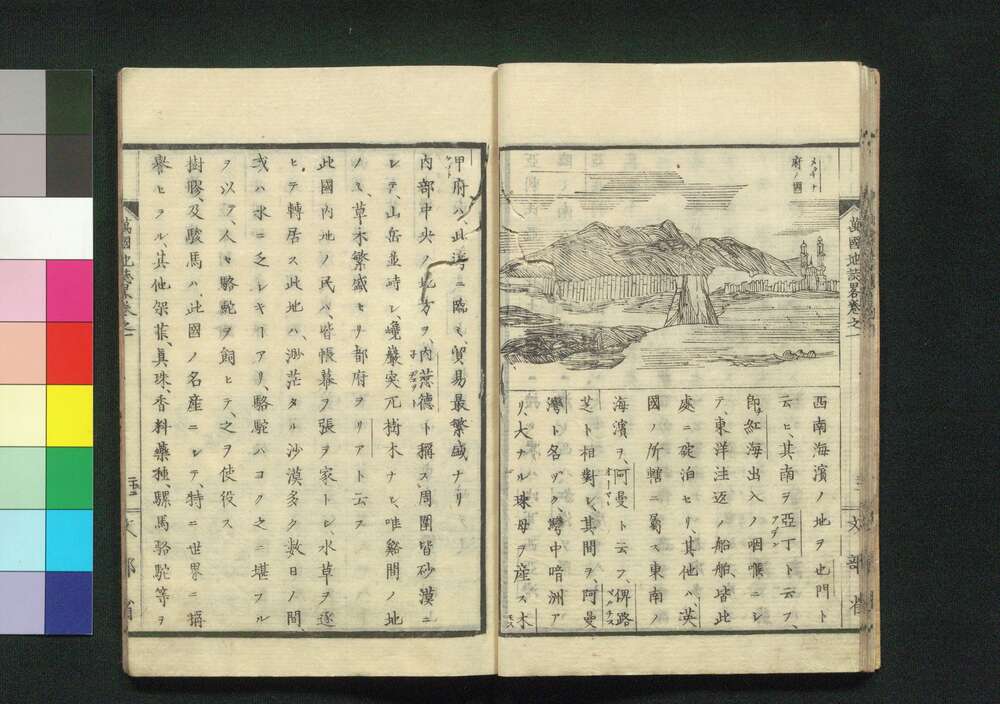 府ノ圖
西南海濱ノ地ヲ也門ト
云ヒ、其南ヲ亞丁ト云フ、
アデン
即紅海出入ノ咽喉ニシ
テ、東洋洼返ノ船舶、皆此
處ニ碇泊セリ、其他ハ、英
國ノ所轄ニ屬ス東南ノ
海濱ヲ、阿曼ト云フ、俾路
オーマン
芝ト相對シ、其間ヲ、阿曼
灣ト名ヅク、灣中暗洲ア
リ、大ナル珠母ヲ産ス木
萬國地誌畧卷之一
文部省
甲府ハ、此灣ニ臨ミ、貿易最繁盛ナリ
内部中央ノ地方ヲ、内葱德ト稱ス、周圍皆砂漠ニ
シテ、山岳並峙シ、巉巖突兀樹木ナシ、唯谿間ノ地
ノミ、草木繁盛セリ都府ヲリアトト云フ
此國内地ノ民ハ、皆帳幕ヲ張ヲ家トシ水草ヲ逐
ヒテ轉居ス此地ハ、渺茫タル沙漠多ク數日ノ間、
或ハ水ニ乏シキーアリ、駱駝ハコク之ニ堪フル
ヲ以テ、人々駱駝ヲ飼ヒテ、之ヲ使役ス
樹膠、及駿馬ハ、此國ノ名産ニシテ、特ニ世界ニ稱
譽ヒラル、其他架菲、眞珠、香料藥種、騾馬駱駝等ヲ
萬國地誌畧卷之一
文部省